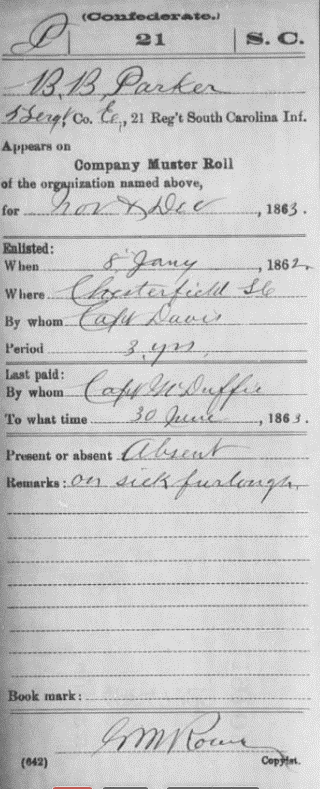 (Confederate.)
P | 21 | S. C.
B. B. Parker
Sergt, Co. E, 21 Reg't South Carolina Inf.
Appears on
Company Muster Roll
of the organization named above,
for Nov & Dec, 1863.
Enlisted:
When 8 Jany, 1862.
Where Chesterfield SC
By whom Capt Davis
Period 3 yrs.
Last paid:
By whom Capt McDuffie
To what time 30 June, 1863.
Present or absent Absent
Remarks: on sick furlough.
Book mark:
(642) Copyist.